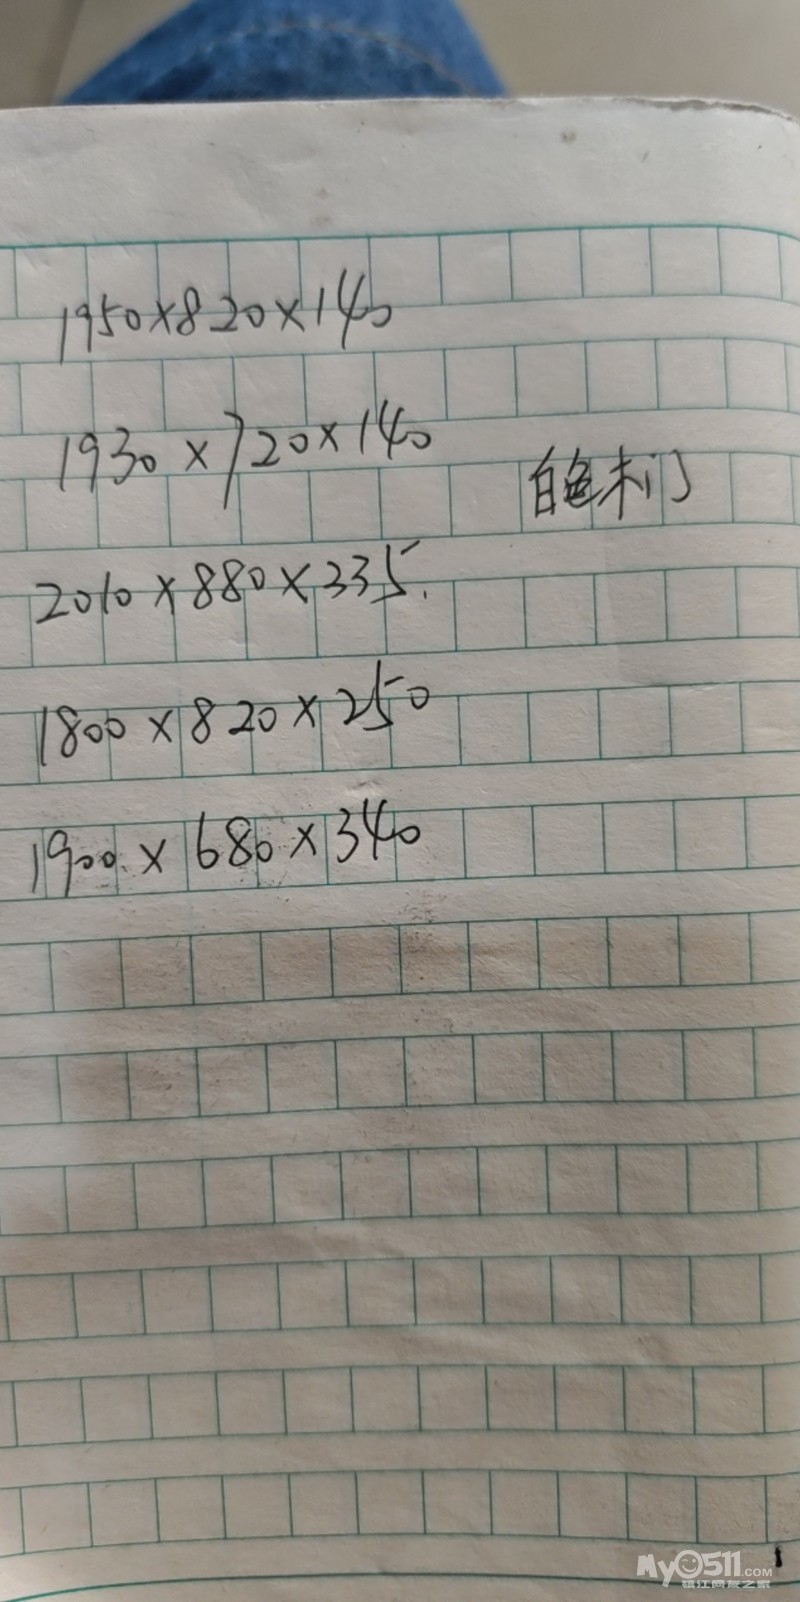 1950×820×140
1930×720×140
白色木门
2010×880×335.
1800×820×250
1900×680×340
My0511.COM
镇江网友之家